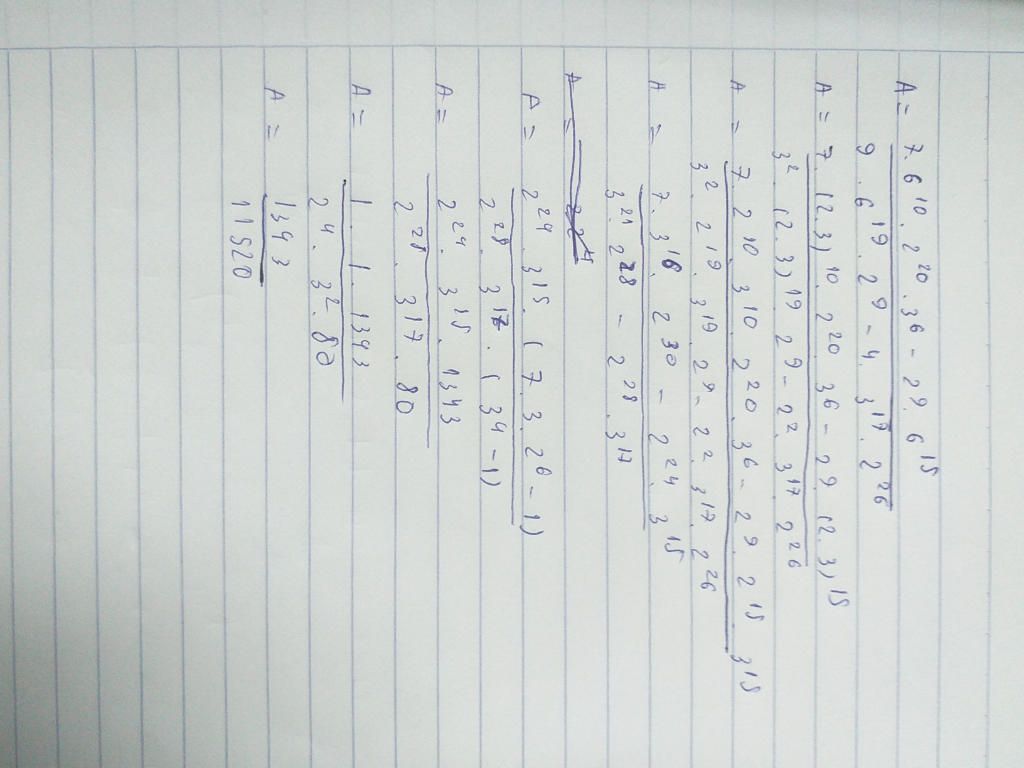 A = 7.6^10.2^20.3^6 - 2^9.6^15
9.6^19.2^9 - 4.3^17.2^26
A = 7.(2.3)^10.2^20.3^6 - 2^9.(2.3)^15
3^2.(2.3)^19.2^9 - 2^2.3^17.2^26
A = 7.2^10.3^10.2^20.3^6 - 2^9.2^15.3^15
3^2.2^19.3^19.2^9 - 2^2.3^17.2^26
A = 7.3^16.2^30 - 2^24.3^15
3^21.2^28 - 2^28.3^17
A = 2^24
A = 2^24.3^15.(7.3.2^6 - 1)
2^28.3^17.(3^4 - 1)
A = 2^24.3^15.1343
2^28.3^17.80
A = 1.1.1343
2^4.3^2.80
A = 1343
11520